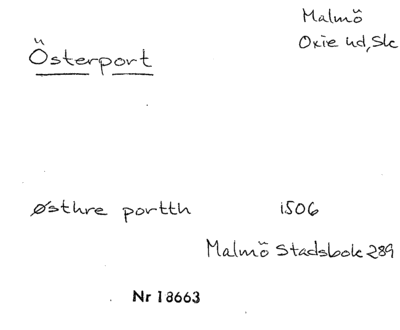 Malmö
Oxie hd, Sk
Österport
østhre portth 1506
Malmö Stadsbok 289
Nr 18663